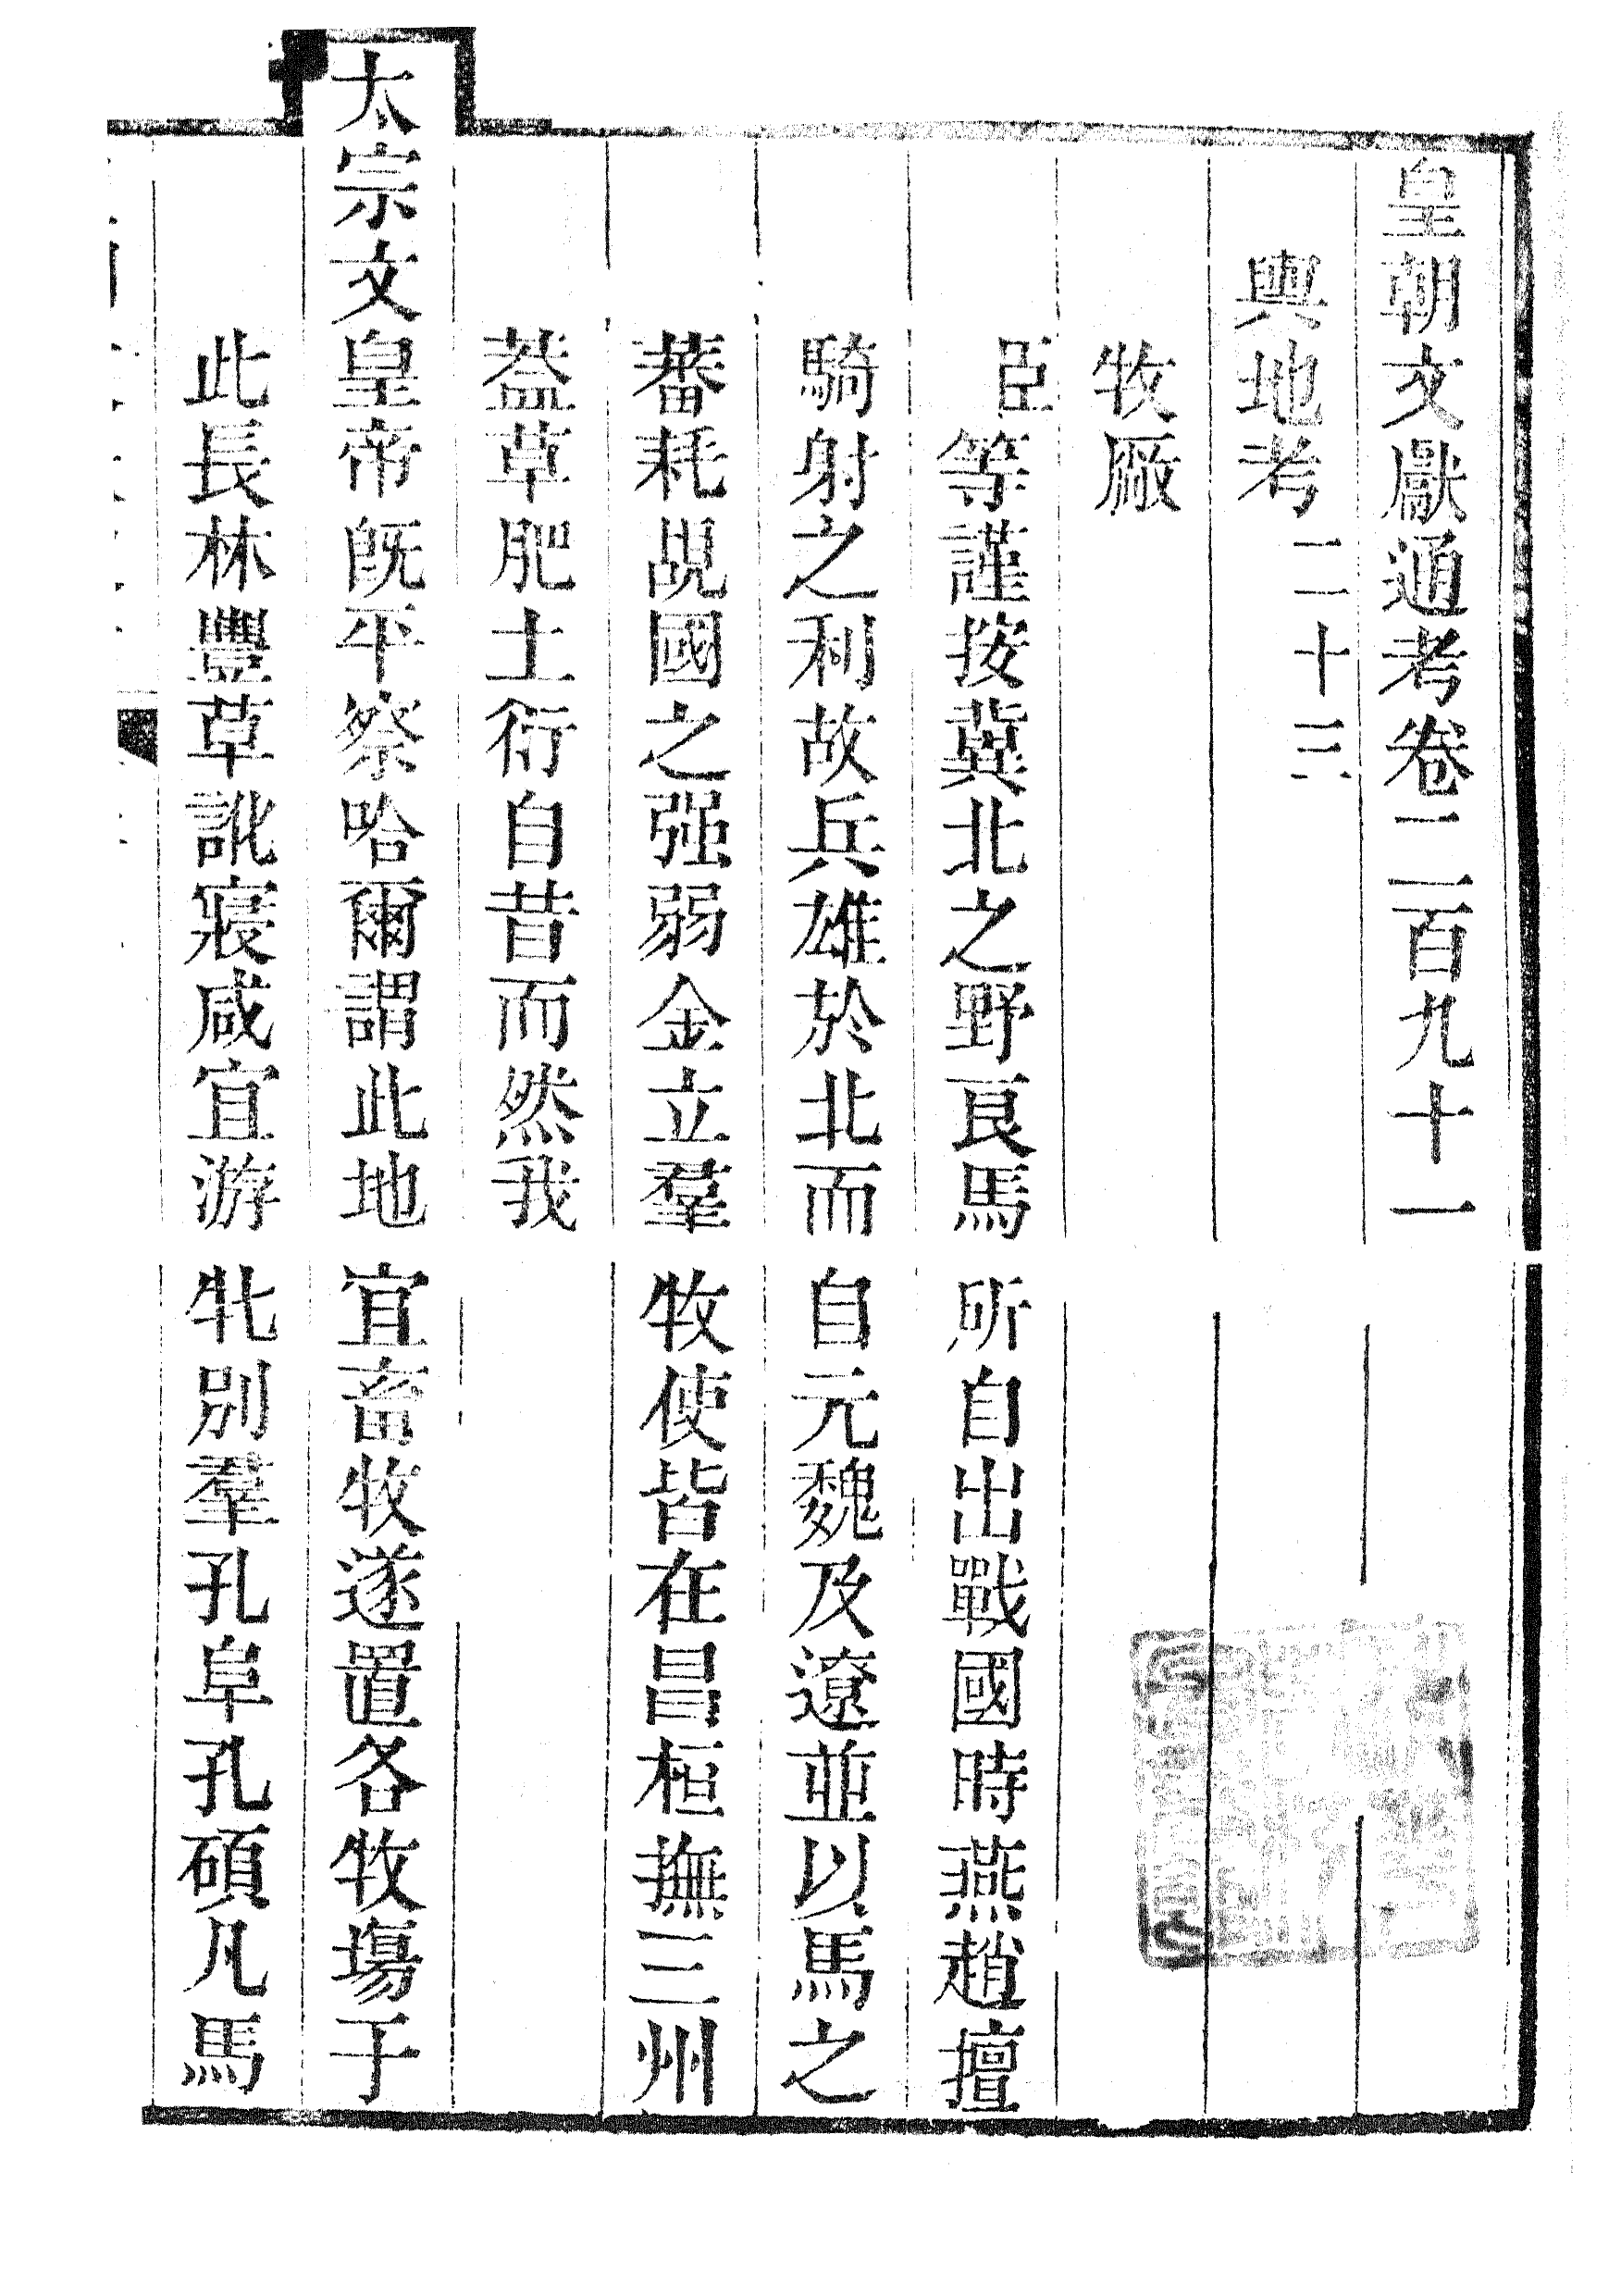 皇朝文獻通考卷二百九十一
輿地考二十三
牧廠
臣等謹按冀北之野良馬所自出戰國時燕趙擅
騎射之利故兵雄於北而自元魏及遼並以馬之
蕃耗覘國之强弱金立羣牧使皆在昌桓撫三州
葢草肥土衍自昔而然我
太宗文皇帝旣平察哈爾謂此地宜畜牧遂置各牧塲于
此長林豐草訛寢咸宜游牝別羣孔阜孔碩凡馬